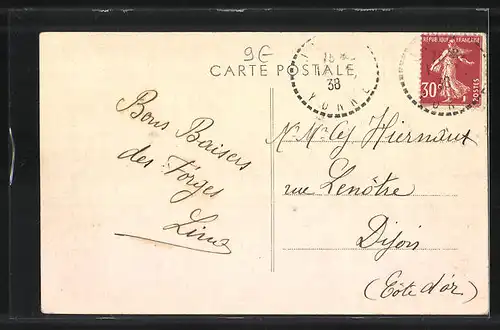 9€
CARTE POSTALE
15
38
YONNE
REPUBLIQUE FRANÇAISE
30c
POSTES
Bons Baisers
des Forges
Hiernaux
rue Lenôtre
Dijon
(Côte d'or)